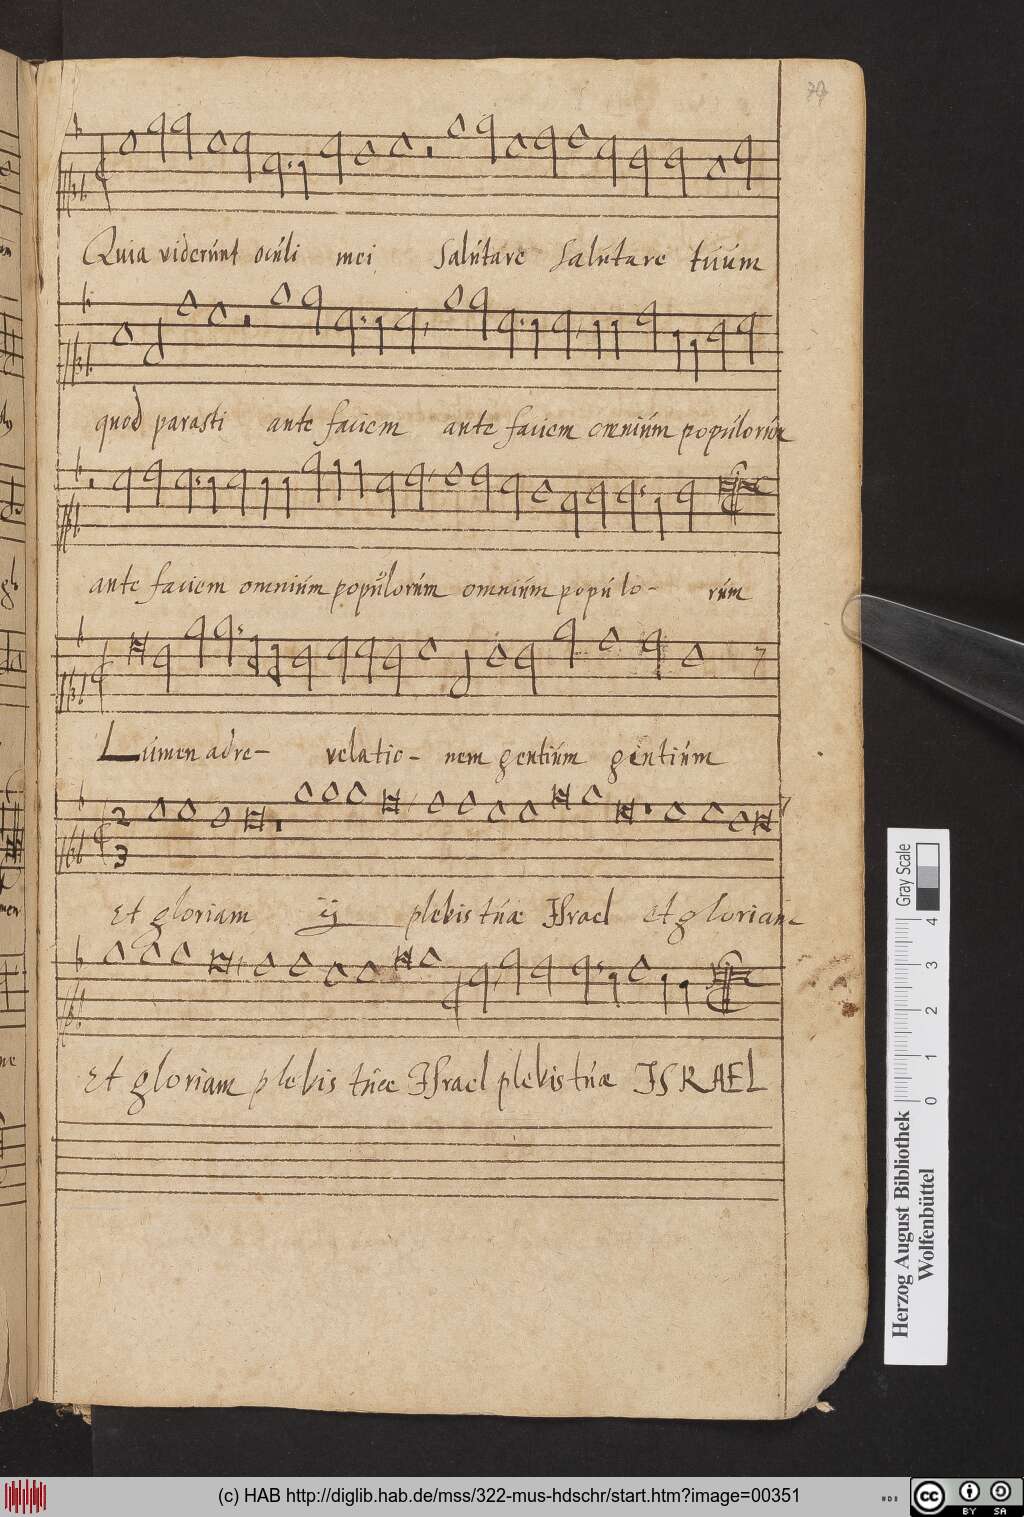 Quia viderunt oculi mei Salutare Salutare tuum
quod parasti ante faciem ante faciem omnium populorum
ante faciem omnium populorum omnium populo- rum
Lumen adre- velatio- nem gentium gentium
2
3
Et gloriam ij plebis tuæ ISrael et gloriam
Et gloriam plebis tuæ ISrael plebis tuæ ISRAEL
Gray Scale
4
3
2
1
0
Herzog August Bibliothek
Wolfenbüttel
(c) HAB http://diglib.hab.de/mss/322-mus-hdschr/start.htm?image=00351
cc
BY SA